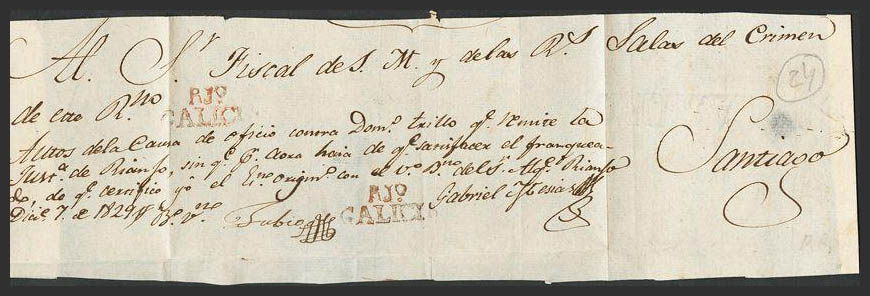 Al. S.r Fiscal de S. M. y de las R.s Salas del Crimen
24
de este R.no
RJº
GALICIA
Autos de la Causa de oficio contra Dom.º trillo q.e remite la
Just.a de Rianjo, sin q.e p.r aora haia de q.e satisfacer el franquea-
do, de q.e certifico yo el E.no origin.º con el v.to B.no del S.r Alq.e Rianjo
Dici.e 7. de 1829
Gabriel
RJº
GALICIA
Santiago